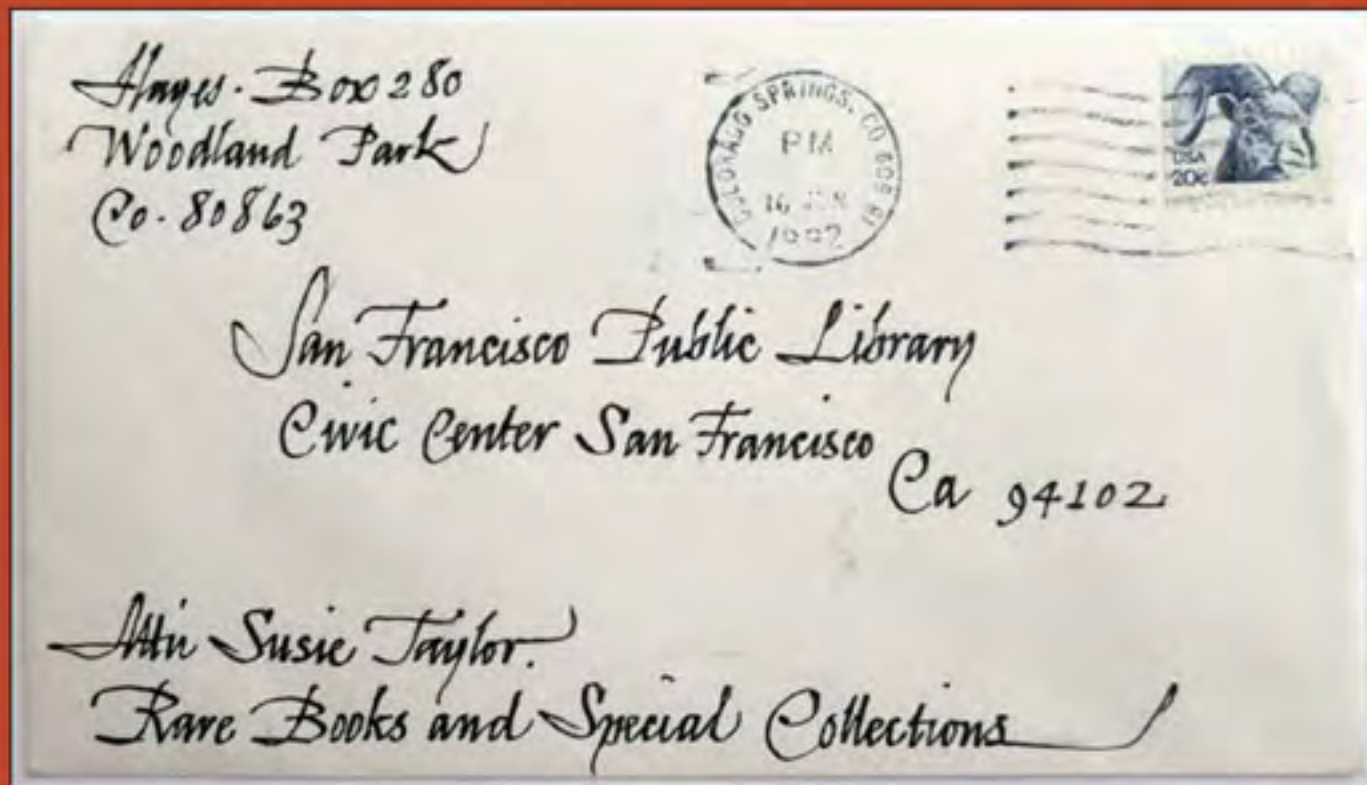 Hayes. Box 280
Woodland Park
Co. 80863
COLORADO SPRINGS, CO
PM
USA
20c
San Francisco Public Library
Civic Center San Francisco
Ca 94102
Attn Susie Taylor.
Rare Books and Special Collections